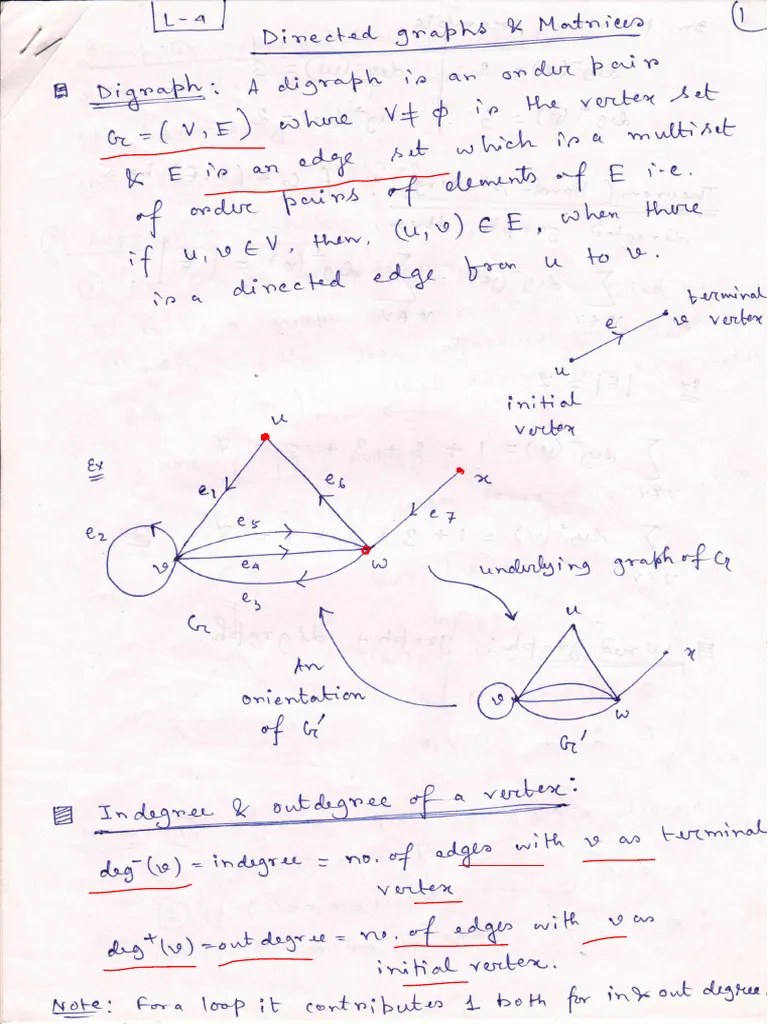 L-9
(1
Directed graphs & Matrices
Digraph: A digraph is an order pair
G = (V, E) where V ≠ ϕ is the vertex set
& E is an edge set which is a multiset
of order pairs of elements of E i.e.
if u, v ∈ V, then, (u, v) ∈ E, when there
is a directed edge from u to v.
terminal
vertex
e
v
u
initial
vertex
Ex
u
x
e1
e6
e7
e2
e5
v
e4
w
e3
G
underlying graph of G
An
orientation
of G'
u
x
v
w
G'
Indegree & outdegree of a vertex:
deg⁻(v) = indegree = no. of edges with v as terminal
vertex
deg⁺(v) = outdegree = no. of edges with v as
initial vertex.
Note: For a loop it contributes 1 both for in & out degree.